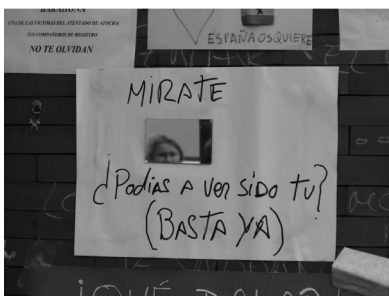 BARAHONA
UNA DE LAS VICTIMAS DEL ATENTADO DE ATOCHA
TUS COMPAÑEROS DE REGISTRO
NO TE OLVIDAN
ESPAÑA OS QUIERE
MIRATE
¿Podias a ver sido tu?
(BASTA YA)
¡QUÉ